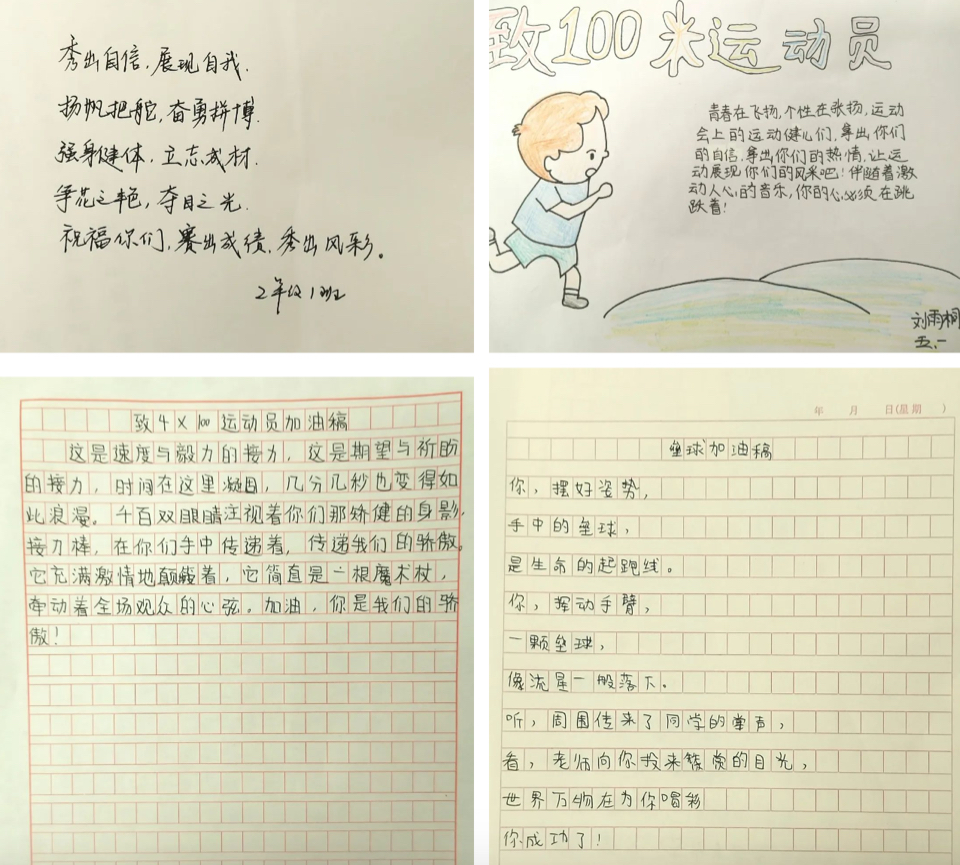 秀出自信，展现自我．
扬帆把舵，奋勇拼博．
强身健体，立志成材．
争花之艳，夺目之光．
祝福你们，赛出成绩，秀出风彩。
2年级1班
致100米运动员
青春在飞扬，个性在张扬，运动
会上的运动健儿们，拿出你们
的自信，拿出你们的热情，让运
动展现你们的风采吧！伴随着激
动人心的音乐，你的心必须在跳
跃着！
刘雨桐
五、一
致4×100运动员加油稿
这是速度与毅力的接力，这是期望与祈盼
的接力，时间在这里凝固，几分几秒也变得如
此浪漫。千百双眼睛注视着你们那矫健的身影，
接力棒，在你们手中传递着，传递我们的骄傲。
它充满激情地颠簸着，它简直是一根魔术杖，
牵动着全场观众的心弦。加油，你是我们的骄
傲！
年 月 日(星期 )
垒球加油稿
你，摆好姿势，
手中的垒球，
是生命的起跑线。
你，挥动手臂，
一颗垒球，
像流星一般落下。
听，周围传来了同学的掌声，
看，老师向你投来赞赏的目光，
世界万物在为你喝彩
你成功了！